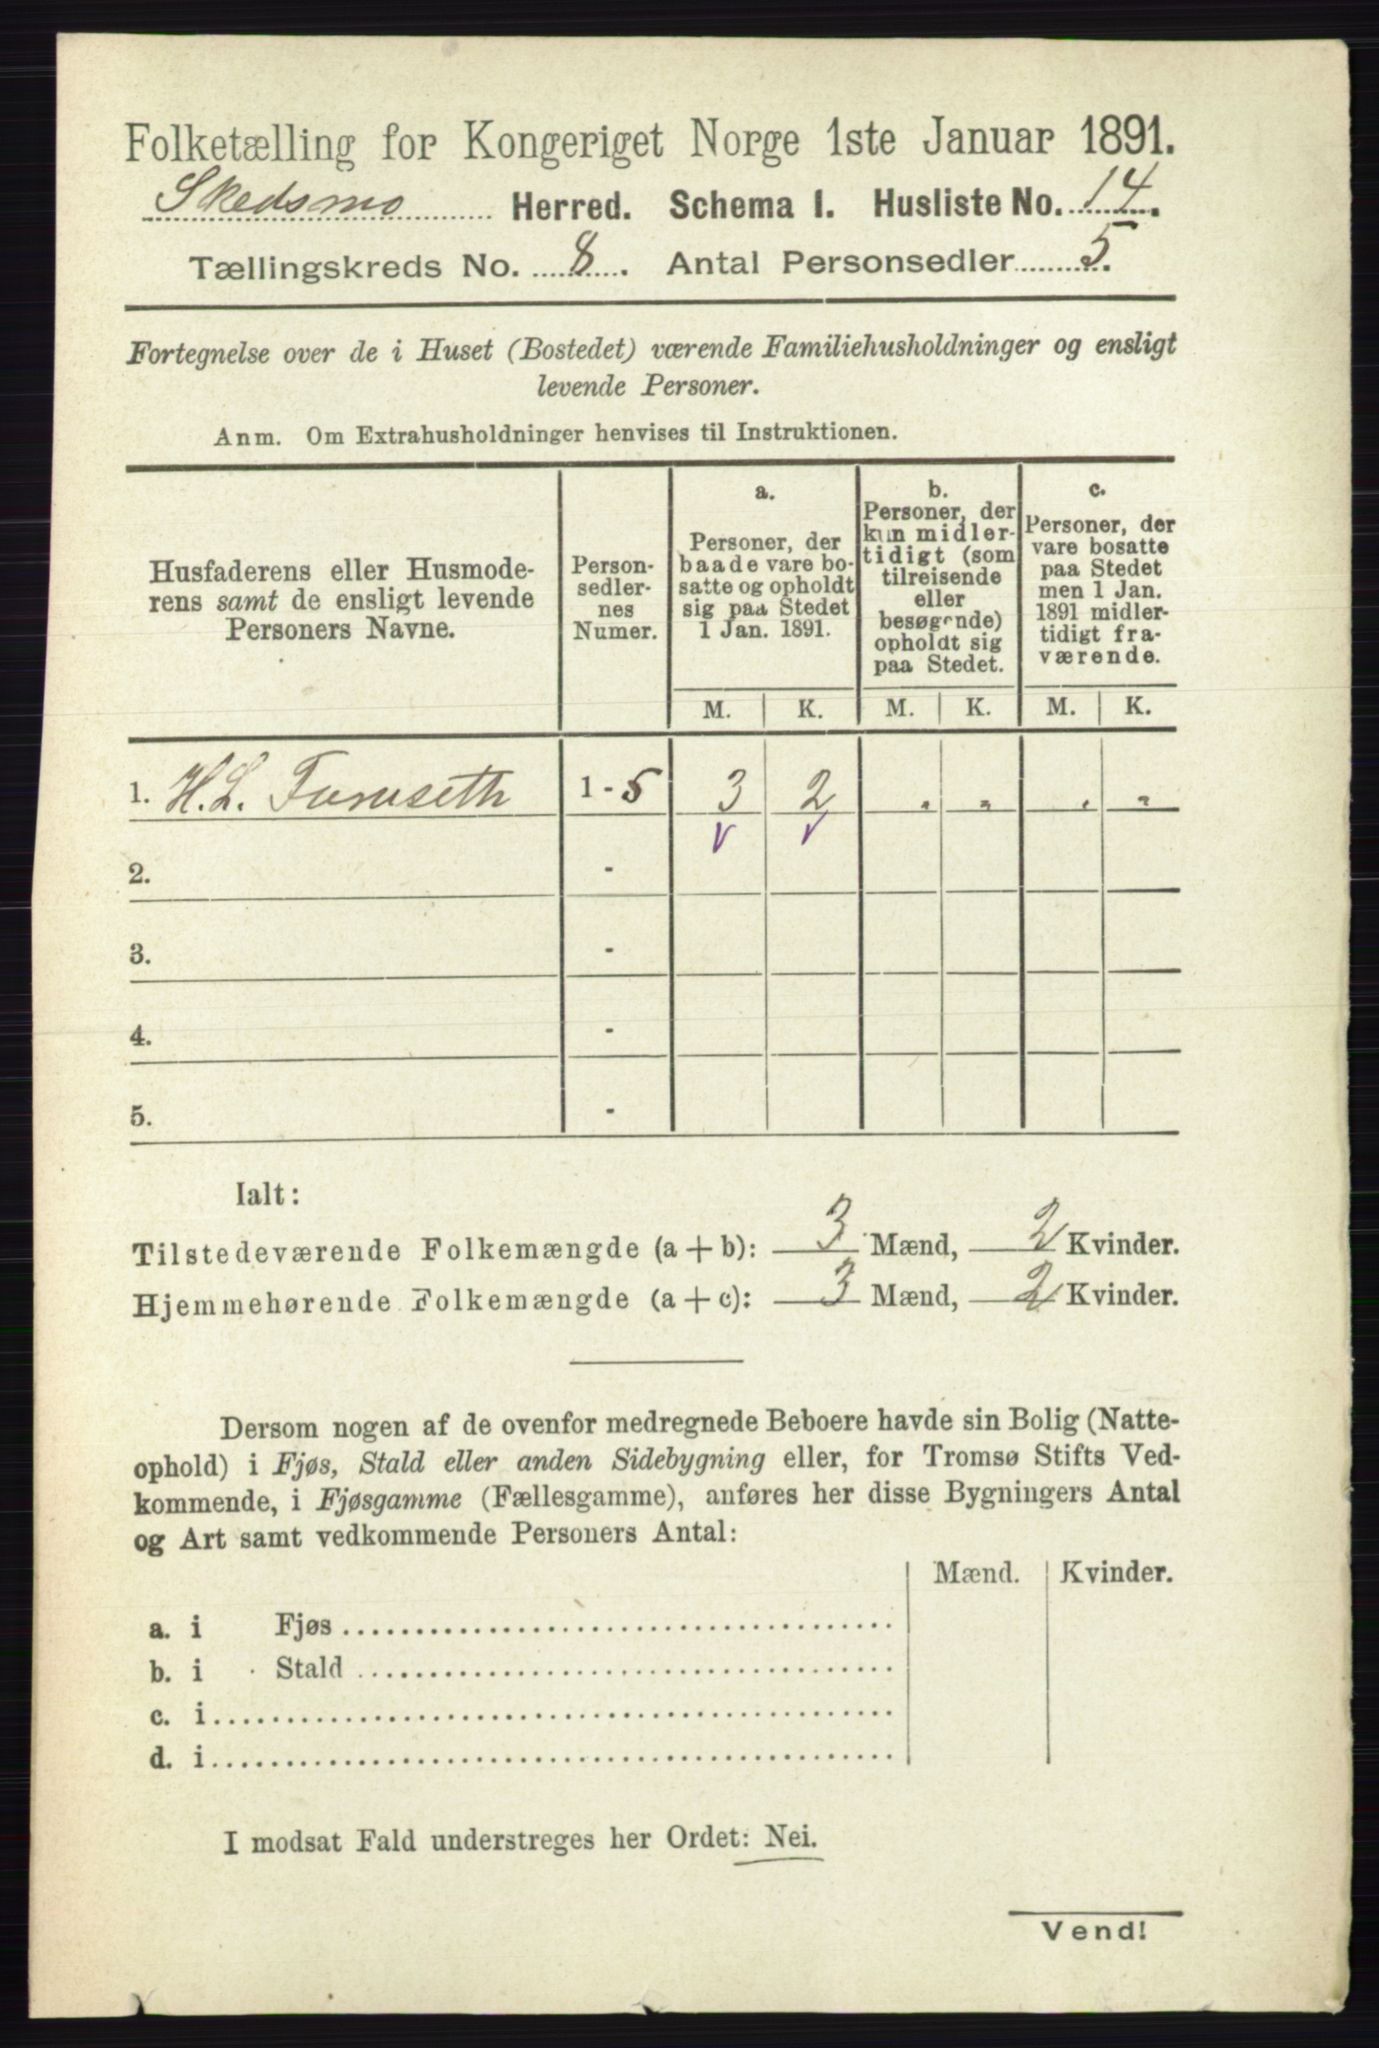 Folketælling for Kongeriget Norge 1ste Januar 1891.
Skedsmo Herred. Schema I. Husliste No. 14.
Tællingskreds No. 8. Antal Personsedler 5.
Fortegnelse over de i Huset (Bostedet) værende Familiehusholdninger og ensligt
levende Personer.
Anm. Om Extrahusholdninger henvises til Instruktionen.
Husfaderens eller Husmode-
rens samt de ensligt levende
Personers Navne.
Person-
sedler-
nes
Numer.
a.
Personer, der
baade vare bo-
satte og opholdt
sig paa Stedet
1 Jan. 1891.
b.
Personer, der
kun midler-
tidigt (som
tilreisende
eller
besøgende)
opholdt sig
paa Stedet.
c.
Personer, der
vare bosatte
paa Stedet
men 1 Jan.
1891 midler-
tidigt fra-
værende.
M. K. M. K. M. K.
1. H. L. Furuseth 1 - 5 3 2 " " " "
v v
2. -
3. -
4. -
5. -
Ialt:
Tilstedeværende Folkemængde (a + b): 3 Mænd, 2 Kvinder.
Hjemmehørende Folkemængde (a + c): 3 Mænd, 2 Kvinder.
Dersom nogen af de ovenfor medregnede Beboere havde sin Bolig (Natte-
ophold) i Fjøs, Stald eller anden Sidebygning eller, for Tromsø Stifts Ved-
kommende, i Fjøsgamme (Fællesgamme), anføres her disse Bygningers Antal
og Art samt vedkommende Personers Antal:
Mænd. Kvinder.
a. i Fjøs
b. i Stald
c. i
d. i
I modsat Fald understreges her Ordet: Nei.
Vend!